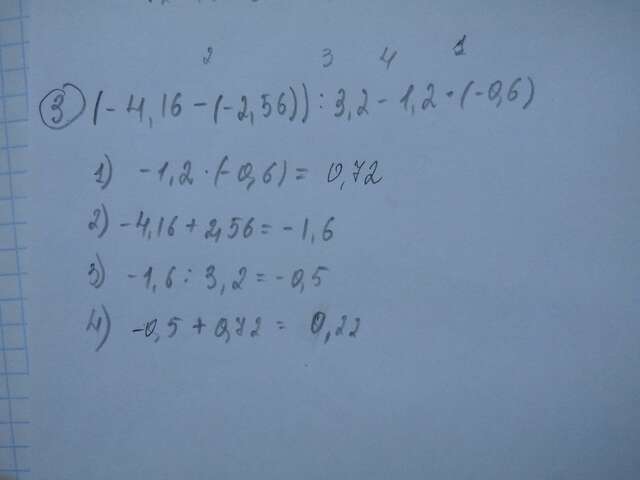 2 3 4 1
3 (-4,16-(-2,56)):3,2-1,2·(-0,6)
1) -1,2·(-0,6)= 0,72
2) -4,16+2,56=-1,6
3) -1,6:3,2=-0,5
4) -0,5+0,72= 0,22